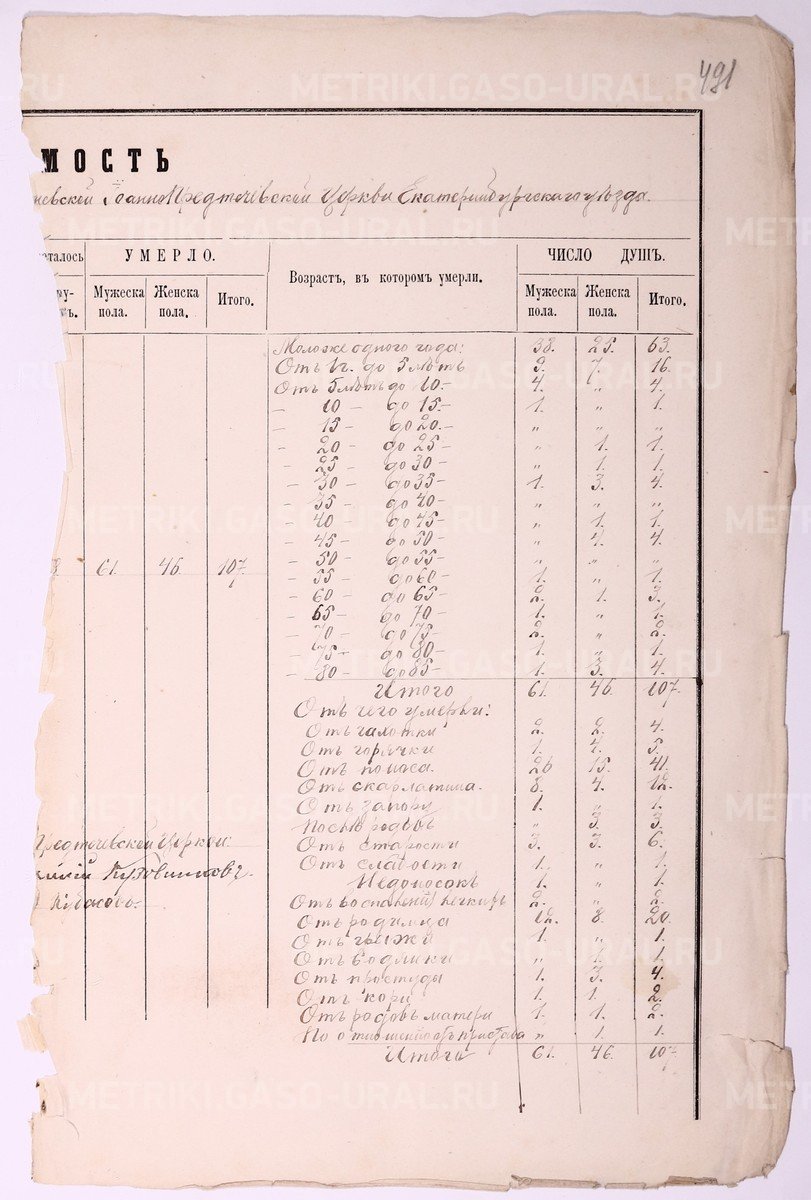 491
МОСТЬ
невской Іоанно Предтечевской Церкви Екатеринбургскаго уѣзда.
УМЕРЛО.
Возрастъ, въ которомъ умерли.
ЧИСЛО ДУШЪ.
Мужеска пола.
Женска пола.
Итого.
Мужеска пола.
Женска пола.
Итого.
Моложе одного года: 38. 25. 63.
Отъ 1 г. до 5 лѣтъ 9. 7. 16.
Отъ 5 лѣтъ до 10.- 4. „ 4.
- 10 - до 15.- 1. „ 1.
- 15 - до 20.- „ „ „
- 20 - до 25 - „ 1. 1.
- 25 - до 30 - „ 1. 1.
- 30 - до 35 - 1. 3. 4.
- 35 - до 40 - „ „ „
- 40 - до 45 - „ 1. 1.
- 45 - до 50 - „ 4. 4.
- 50 - до 55 - „ „ „
61. 46. 107.
- 55 - до 60 - 1. „ 1.
- 60 - до 65 - 2. 1. 3.
- 65 - до 70 - 1. „ 1.
- 70 - до 75 - 2. „ 2.
- 75 - до 80 - 1. „ 1.
- 80 - до 85 - 1. 3. 4.
Итого 61. 46. 107.
Отъ чего умерли:
Отъ чахотки 2. 2. 4.
Отъ горячки 1. 4. 5.
Отъ поноса. 26 15. 41.
Отъ скарлатина. 8. 4. 12.
Отъ запору 1. „ 1.
Послѣ родовъ „ 3. 3.
Предтечевской Церкви:
Отъ старости 3. 3. 6.
Отъ слабости 1. „ 1.
Недоносокъ 1. „ 1.
Отъ 2. „ 2.
Отъ родимца 12. 8. 20.
Отъ грыжи 1. „ 1.
Отъ „ 1. 1.
Отъ простуды 1. 3. 4.
Отъ кори 1. 1. 2.
Отъ родовъ матери 1. 1. 2.
По „ 1. 1.
Итого 61. 46. 107.
METRIKI.GASO-URAL.RU